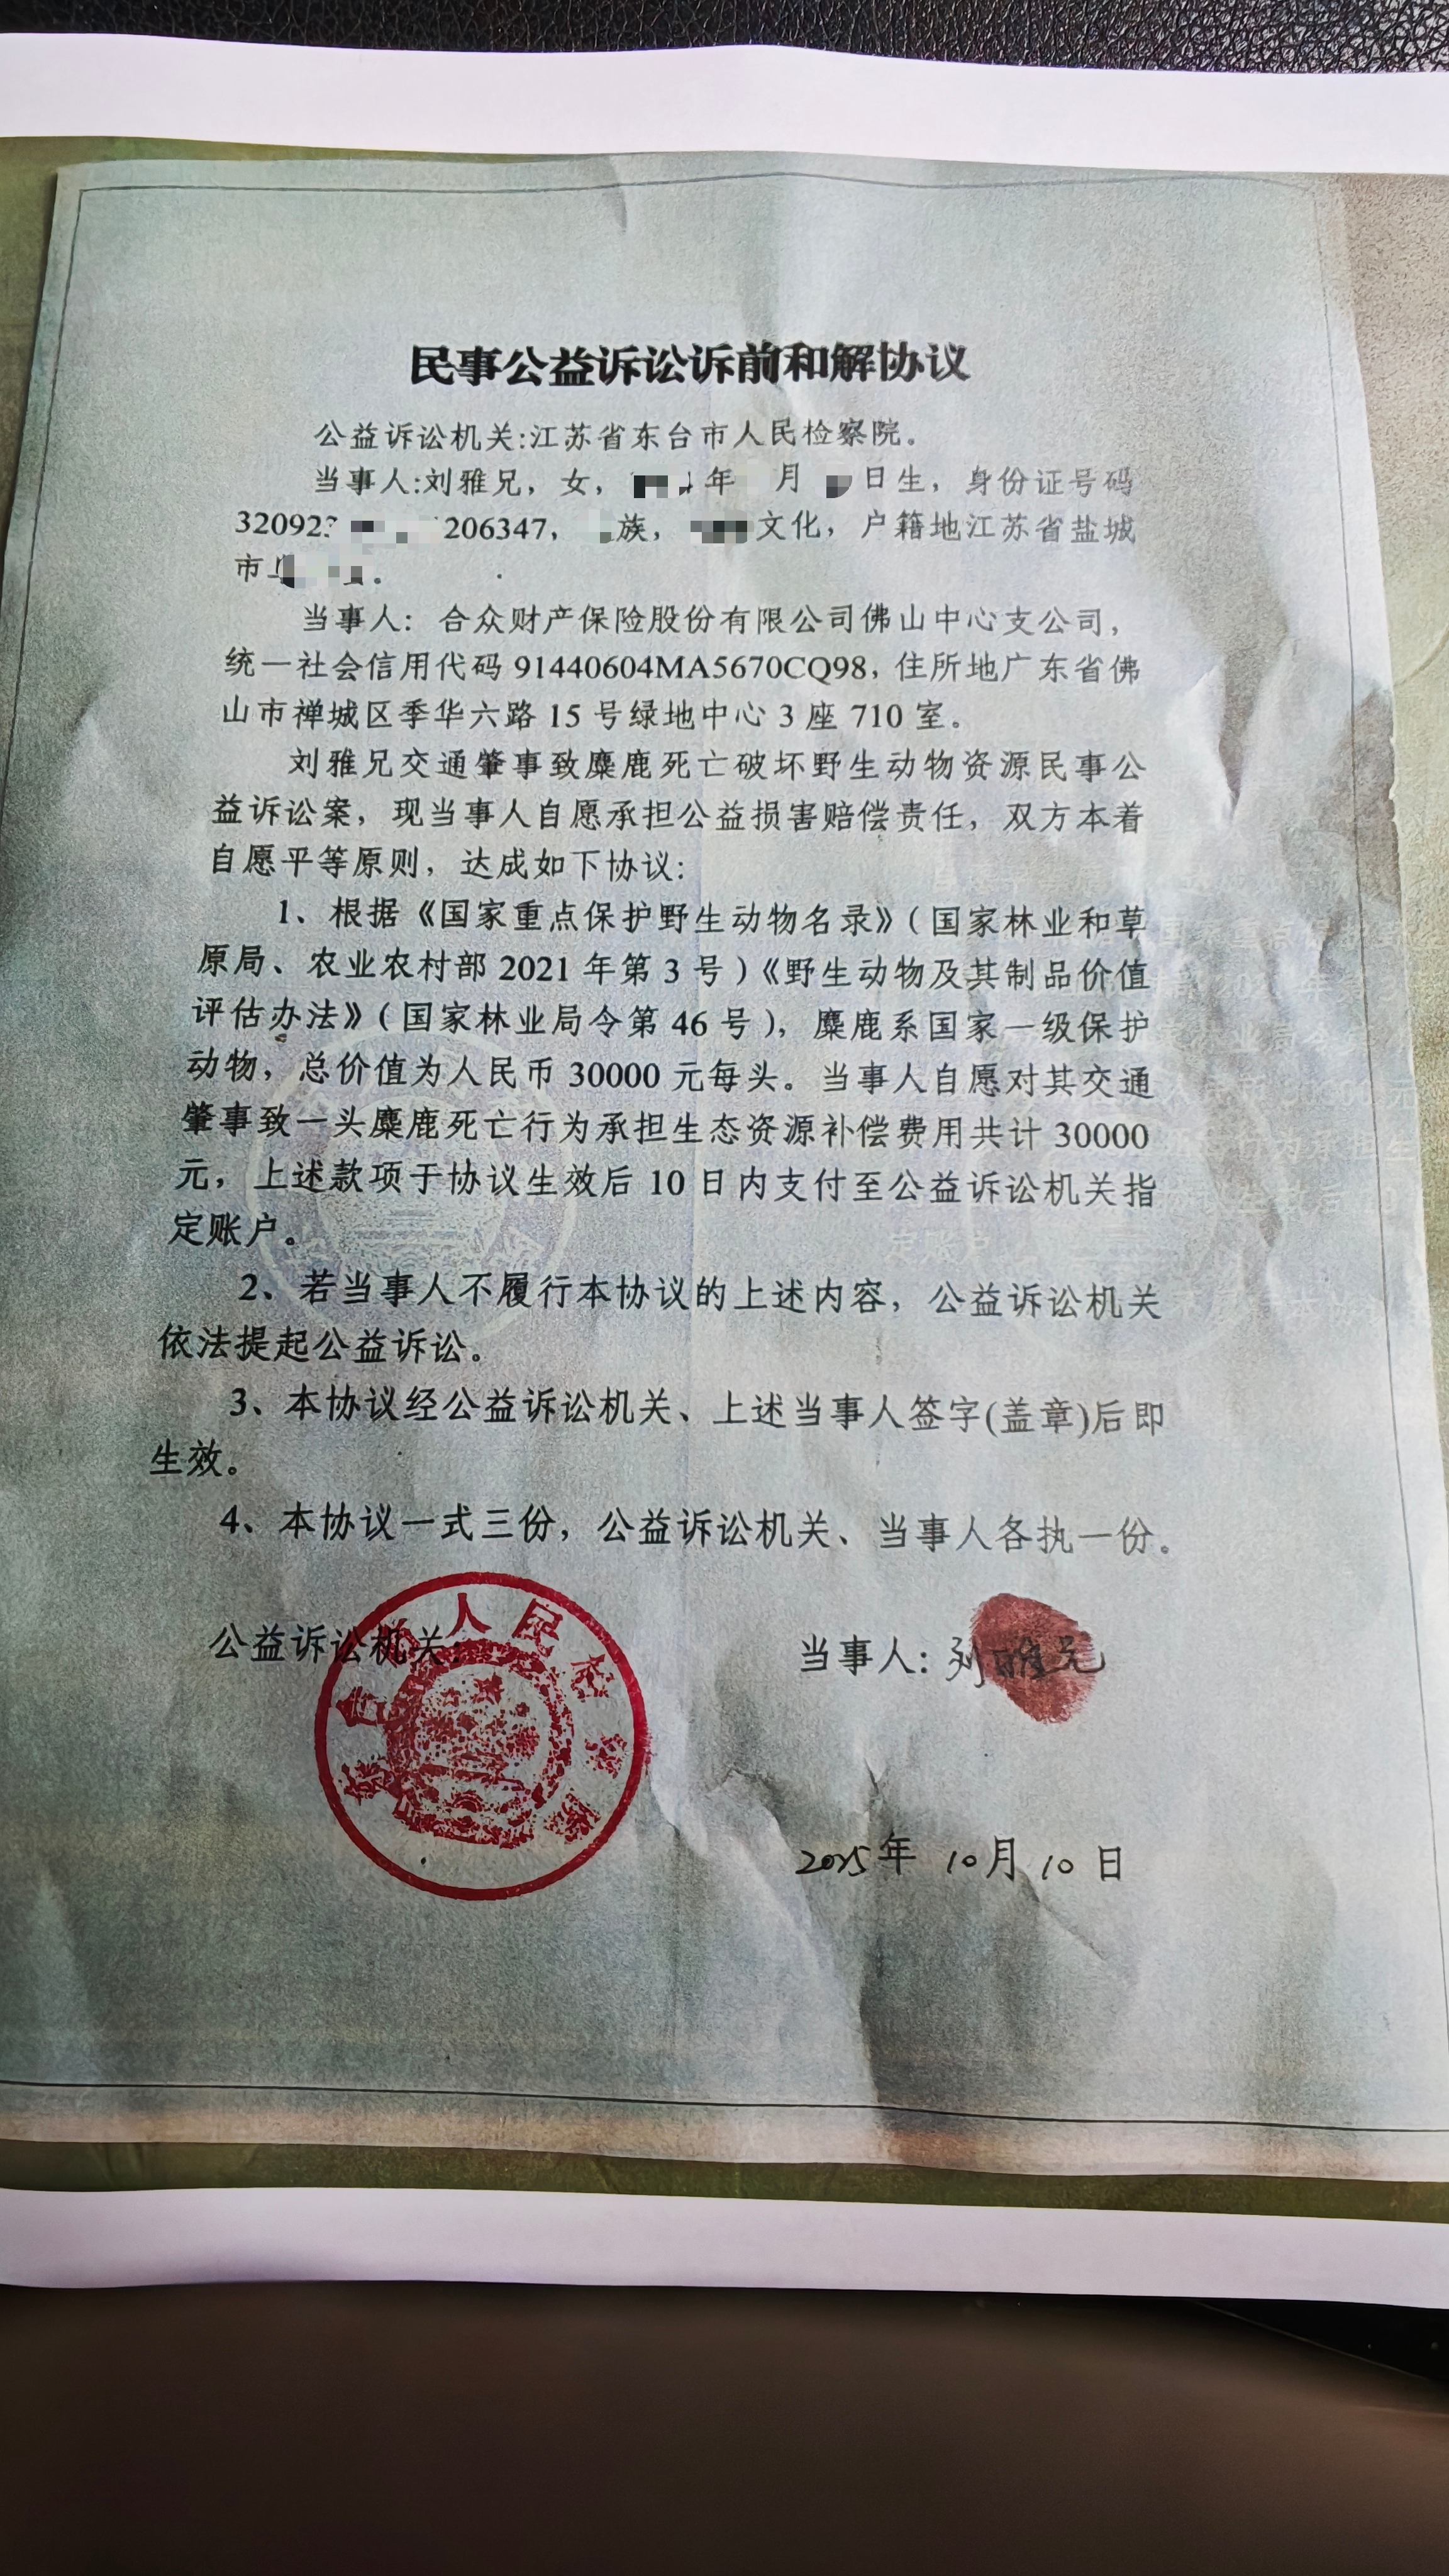 民事公益诉讼诉前和解协议
公益诉讼机关:江苏省东台市人民检察院。
当事人:刘雅兄，女，年 月 日生，身份证号码
32092 206347，族，文化，户籍地江苏省盐城
市 。
当事人：合众财产保险股份有限公司佛山中心支公司，
统一社会信用代码 91440604MA5670CQ98，住所地广东省佛
山市禅城区季华六路 15 号绿地中心 3 座 710 室。
刘雅兄交通肇事致麋鹿死亡破坏野生动物资源民事公
益诉讼案，现当事人自愿承担公益损害赔偿责任，双方本着
自愿平等原则，达成如下协议：
1、根据《国家重点保护野生动物名录》（国家林业和草
原局、农业农村部 2021 年第 3 号）《野生动物及其制品价值
评估办法》（国家林业局令第 46 号），麋鹿系国家一级保护
动物，总价值为人民币 30000 元每头。当事人自愿对其交通
肇事致一头麋鹿死亡行为承担生态资源补偿费用共计 30000
元，上述款项于协议生效后 10 日内支付至公益诉讼机关指
定账户。
2、若当事人不履行本协议的上述内容，公益诉讼机关
依法提起公益诉讼。
3、本协议经公益诉讼机关、上述当事人签字(盖章)后即
生效。
4、本协议一式三份，公益诉讼机关、当事人各执一份。
公益诉讼机关：
人民检察院
当事人：刘雅兄
2025年 10月 10日